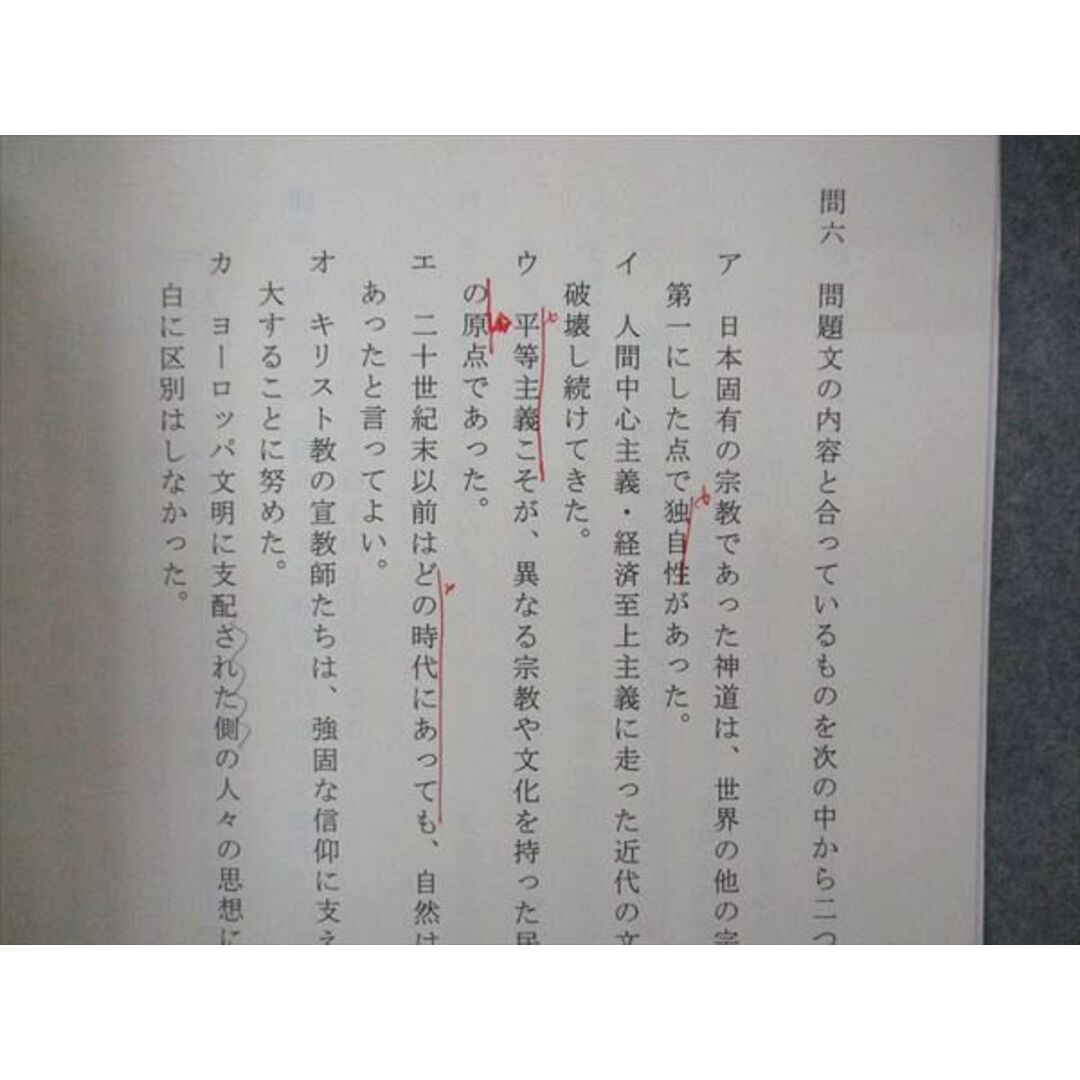 問六 問題文の内容と合っているものを次の中から二つ
ア 日本固有の宗教であった神道は、世界の他の宗
第一にした点で独自性があった。
イ 人間中心主義・経済至上主義に走った近代の文
破壊し続けてきた。
ウ 平等主義こそが、異なる宗教や文化を持った民
の原点であった。
エ 二十世紀末以前はどの時代にあっても、自然は
あったと言ってよい。
オ キリスト教の宣教師たちは、強固な信仰に支え
大することに努めた。
カ ヨーロッパ文明に支配された側の人々の思想に
白に区別はしなかった。